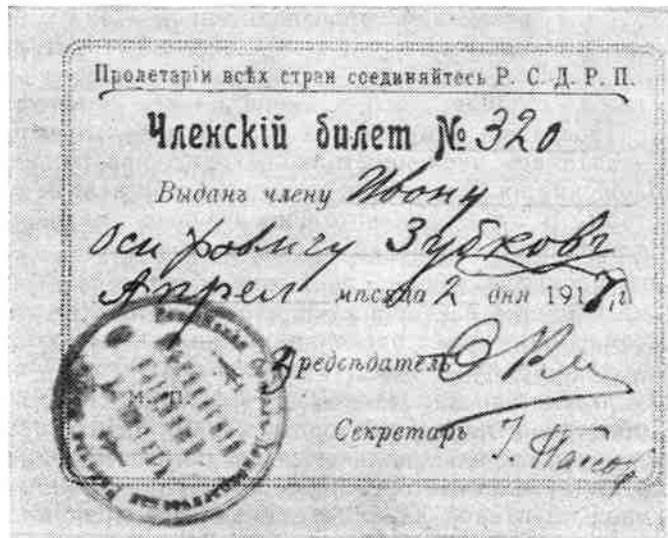 Пролетаріи всѣх стран соединяйтесь Р. С. Д. Р. П.
Членскій билет № 320
Выданъ члену Ивону
Осиповичу Зубковъ
Апрел мѣсяца 2 дня 1917 г.
Предсѣдатель
М. П.
Секретарь